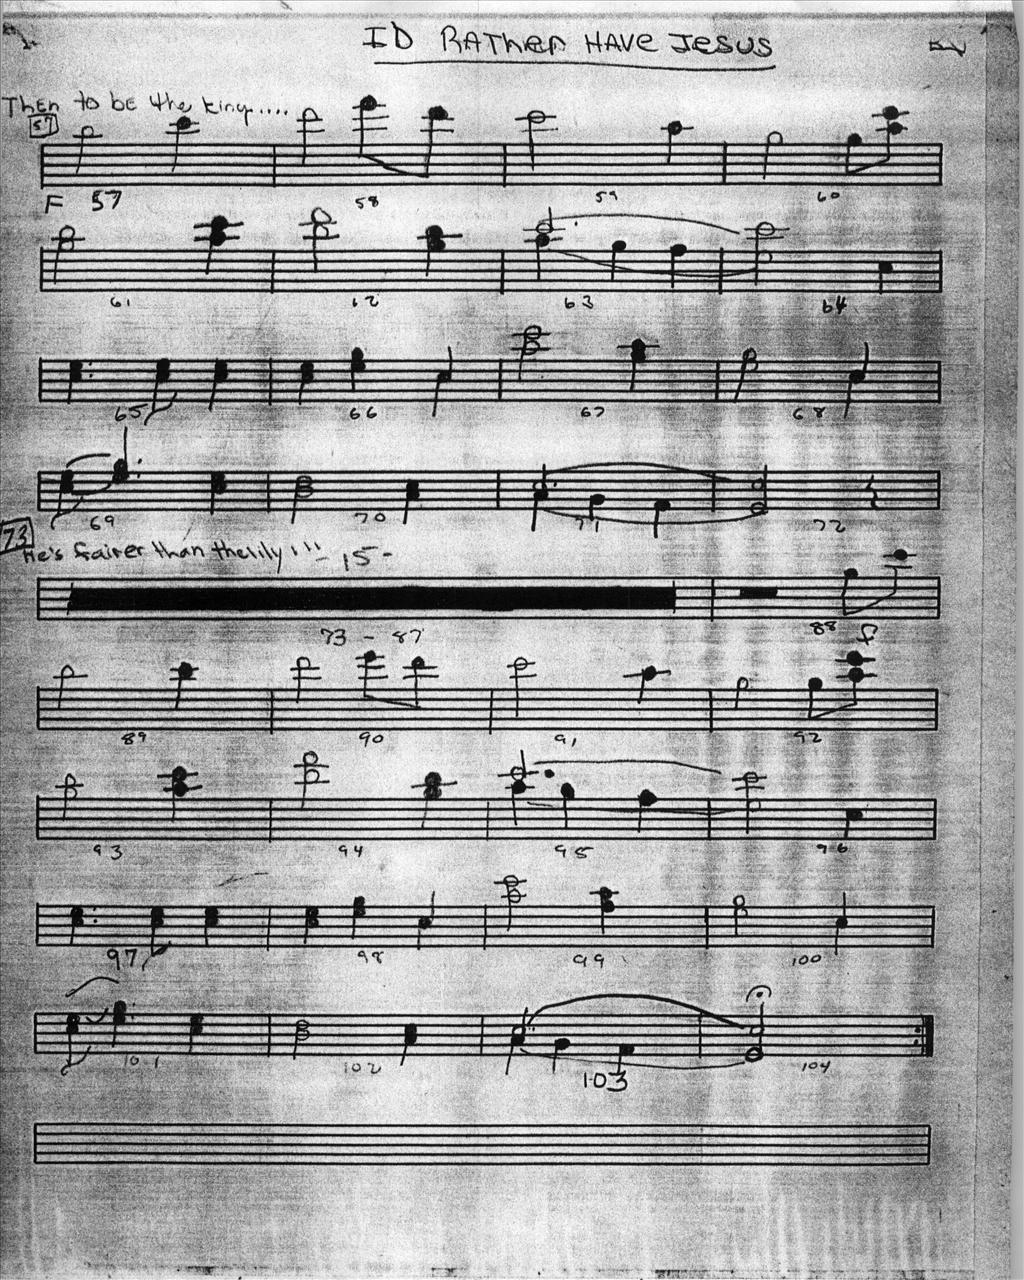 ID RATHER HAVE JESUS
THEN to be the king....
57
F 57 58 59 60
61 62 63 64
65 66 67 68
69 70 71 72
73
He's fairer than the lily''' - 15 -
73 - 87 88 f
89 90 91 92
93 94 95 96
97 98 99 100
101 102 103 104